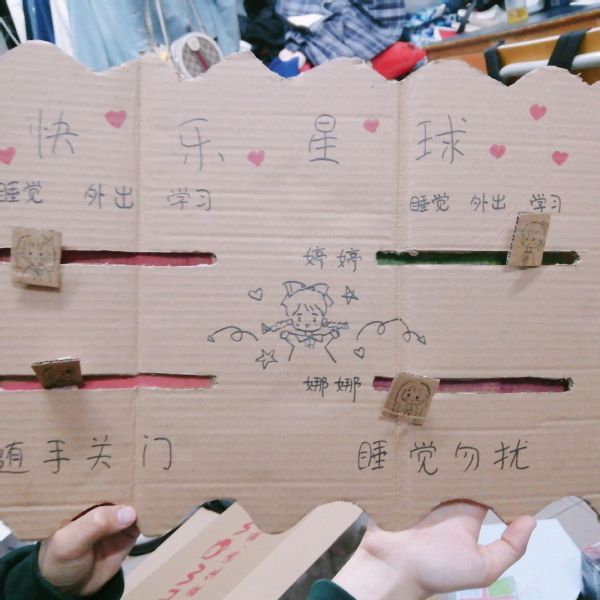 快乐星球
睡觉 外出 学习 睡觉 外出 学习
婷婷
娜娜
随手关门 睡觉勿扰